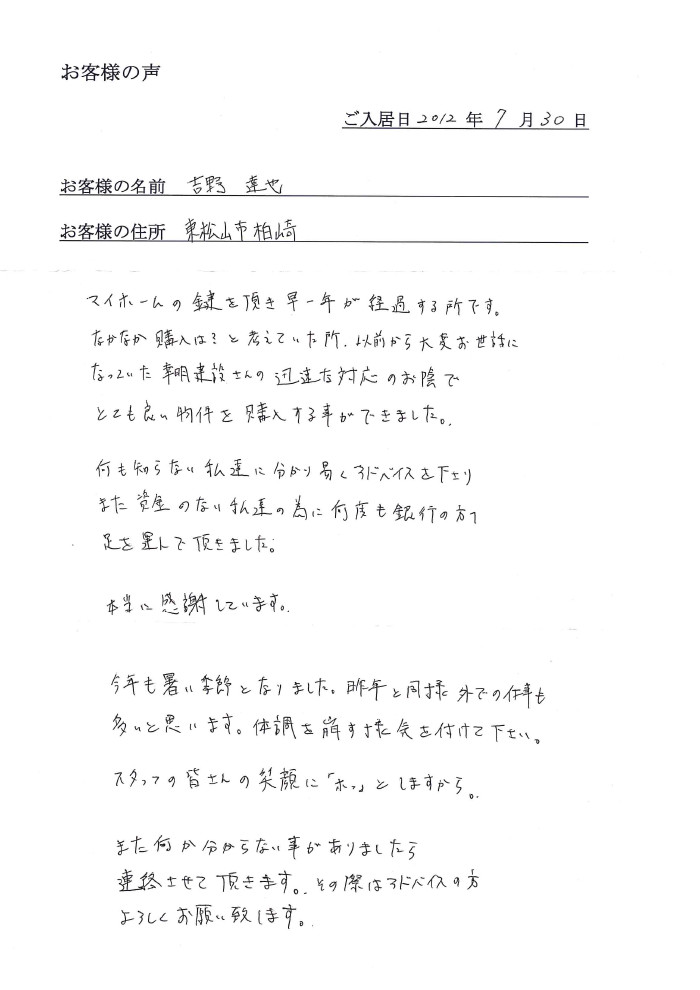 お客様の声
ご入居日 2012 年 7 月 30 日
お客様の名前 吉野 達也
お客様の住所 東松山市柏崎
マイホームの鍵を頂き早一年が経過する所です。
なかなか購入は?と考えていた所、以前から大変お世話に
なっていた 建設さんの迅速な対応のお陰で
とても良い物件を購入する事ができました。
何も知らない私達に分かり易くアドバイスを下さり
また資金のない私達の為に何度も銀行の方へ
足を運んで頂きました。
本当に感謝しています。
今年も暑い季節となりました。昨年と同様外での仕事も
多いと思います。体調を崩す様気を付けて下さい。
スタッフの皆さんの笑顔に「ホッ」としますから。
また何か分からない事がありましたら
連絡させて頂きます。その際はアドバイスの方
よろしくお願い致します。